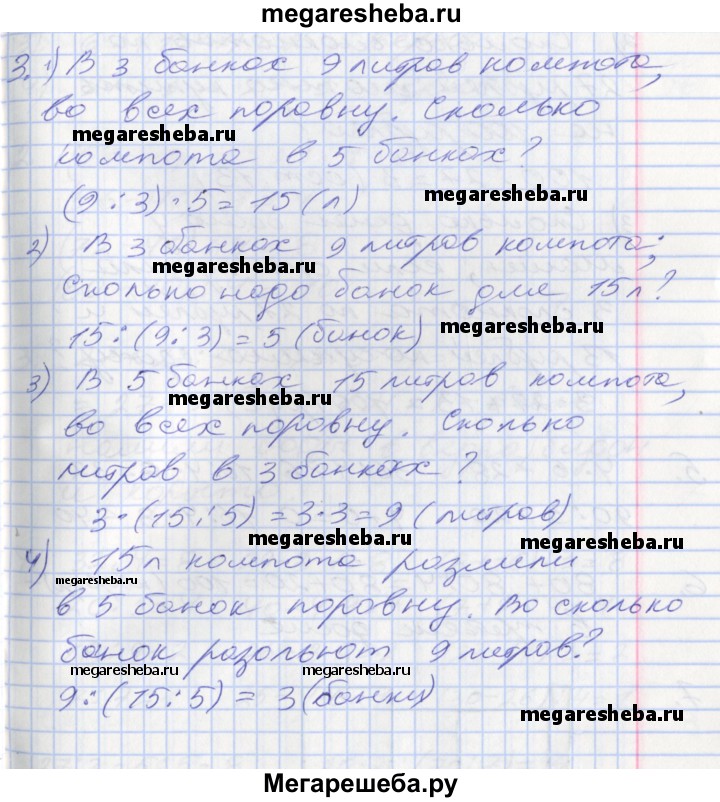 megaresheba.ru
3. 1) В 3 банках 9 литров компота,
во всех поровну. Сколько
megaresheba.ru
компота в 5 банках?
megaresheba.ru
(9:3)·5=15(л)
2) В 3 банках 9 литров компота;
megaresheba.ru
Сколько надо банок для 15л?
15:(9:3)=5(банок)
megaresheba.ru
3) В 5 банках 15 литров компота,
megaresheba.ru
во всех поровну. Сколько
литров в 3 банках?
megaresheba.ru
3·(15:5)=3·3=9(литров)
4) 15л компота разлили
megaresheba.ru
megaresheba.ru
в 5 банок поровну. Во сколько
банок разольют 9 литров?
megaresheba.ru
megaresheba.ru
9:(15:5)=3(банки)
megaresheba.ru
Мегарешеба.ру